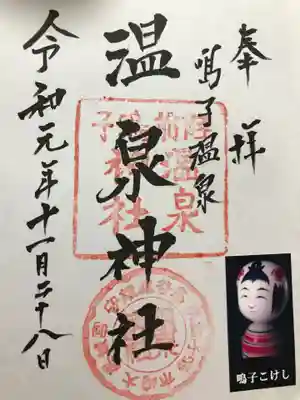 奉拝
鳴子温泉
温泉神社
令和元年十一月二十八日
鳴子こけし